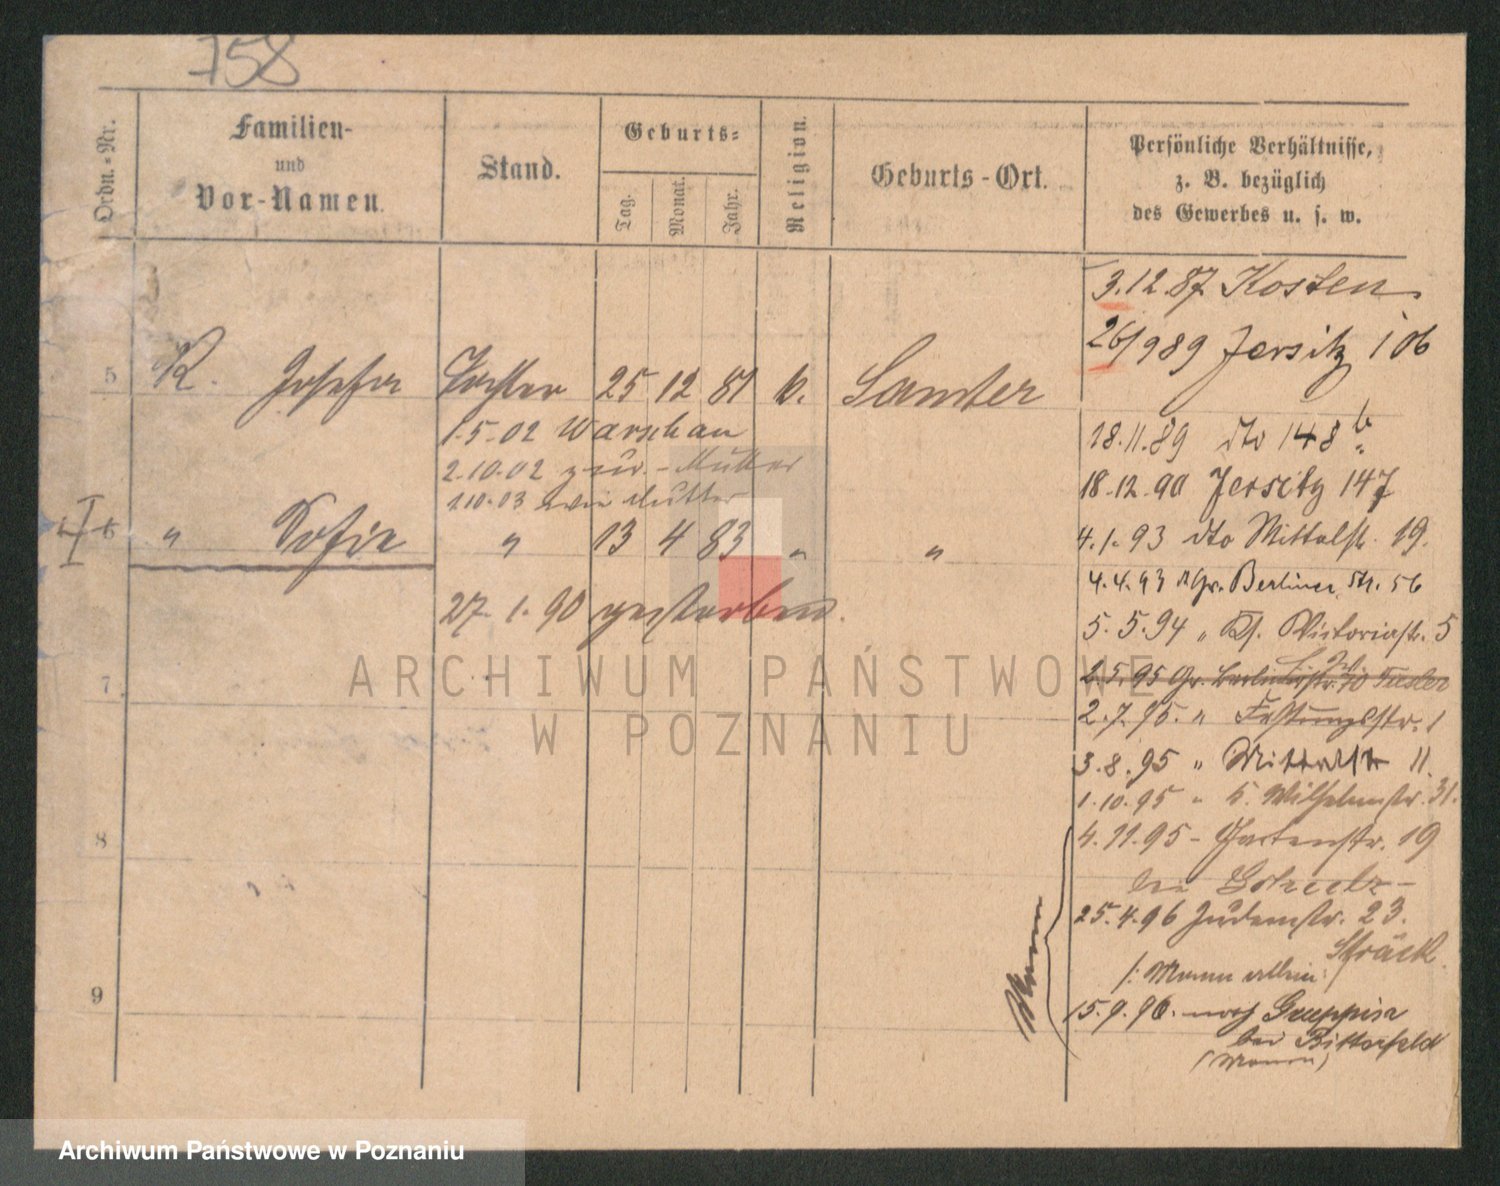 758
Ordn.-Nr.
Familien-
und
Vor-Namen.
Stand.
Geburts-
Tag.
Monat.
Jahr.
Religion.
Geburts-Ort.
Persönliche Verhältnisse,
z. B. bezüglich
des Gewerbes u. s. w.
3.12.87 Kosten
26/9 89 Jersitz 106
5 K. Josefa Tochter 25 12 81 k. Samter
1.5.02 Warschau
2.10.02 zur. - Mutter
1.10.03 wie Mutter
18.11.89 dto 148 b
18.12.90 Jersitz 147
6 " Sofia " 13 4 83 " "
27.1.90 gestorben.
4.1.93 dto Mittelstr. 19.
4.4.93 Gr. Berliner Str. 56
5.5.94 " Victoriastr. 5
2.5.95 Gr. Berlinerstr.
7
2.7.95. " Festungsstr. 1
3.8.95 " Mittelstr 11.
1.10.95 " Wilhelmstr. 31.
8
4.11.95 - Gartenstr. 19
bei
25.4.96 Judenstr. 23.
/: Mann allein :
9
15.9.96. nach Greppin
bei Bitterfeld
(Mann)
Mann
ARCHIWUM PAŃSTWOWE
W POZNANIU
Archiwum Państwowe w Poznaniu